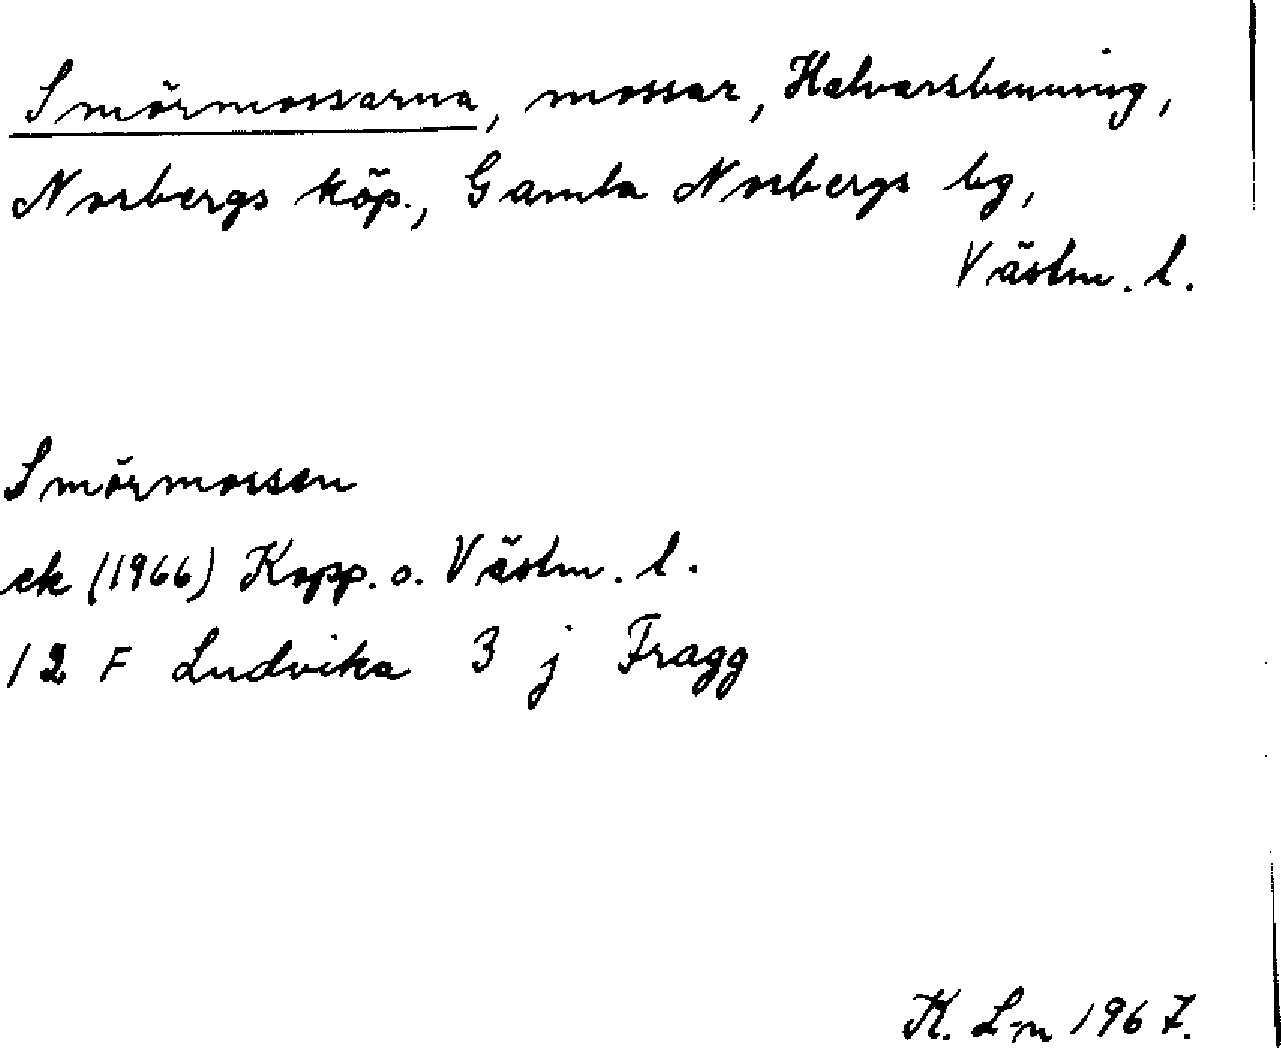 Smörmossarna, mossar, Halvarsbenning,
Norbergs köp., Gamla Norbergs bg,
Västm. l.
Smörmossen
ek (1966) Kopp. o. Västm. l.
12 F Ludvika 3 j Fragg
K. L-n 1967.